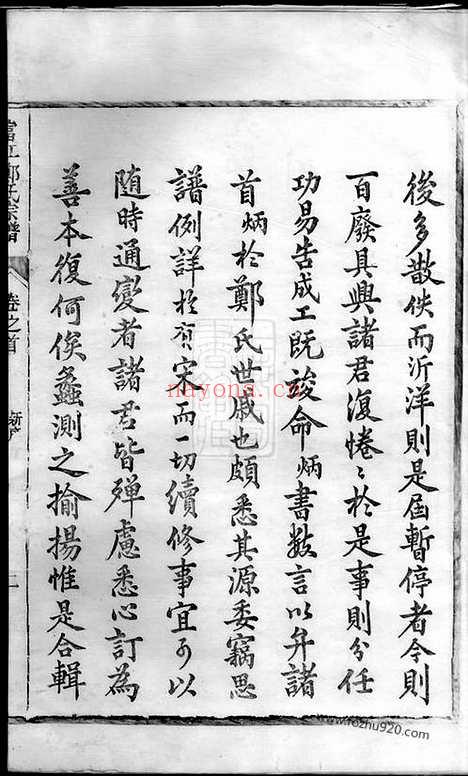 後多散佚而沂洋則是屆暫停者今則
百廢具興諸君復惓〻於是事則分任
功易告成工既竣命炳書数言以弁諸
首炳於鄭氏世戚也頗悉其源委竊思
譜例詳於有宋而一切續修事宜可以
随時通變者諸君皆殫慮悉心訂為
善本復何俟蠡測之揄揚惟是合輯
鄭氏宗譜
卷之首
二
nayona.cn
www.fozhu920.com